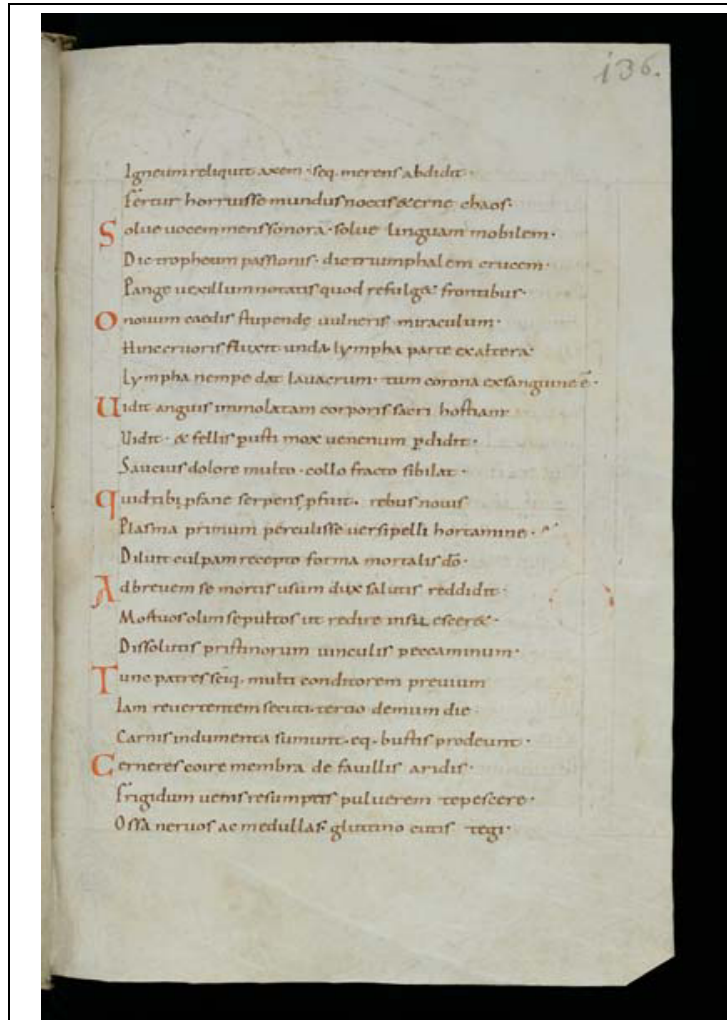 136.
Igneum reliquit axem · seq. merens abdidit ·
Fertur horruisse mundus noctis &erne chaos ·
Solue uocem mens sonora · solue linguam mobilem ·
Dic tropheum passionis · dic triumphalem crucem ·
Pange uexillum notatis quod refulg& frontibus ·
O nouum caedis stupende uulneris miraculum ·
Hinc cruoris fluxit unda · lympha parte ex altera ·
Lympha nempe dat lauacrum · tum corona ex sanguine ē ·
Uidit anguis immolatam corporis sacri hostiam
Uidit · & fellis pusti mox uenenum pdidit ·
Saucius dolore multo · collo fracto sibilat ·
Quid tibi pfane serpens pfuit · rebus nouis
Plasma primum perculisse uersipelli hortamine ·
Diluit culpam recepto forma mortalis dō ·
Ad breuem se mortis usum dux salutis reddidit ·
Mostuos olim sepultos ut redire insu escer& ·
Dissolutis pristinorum uinculis peccaminum ·
Tunc patres sciq. multi conditorem preuium
Iam reuertentem secuti · tertio demum die ·
Carnis indumenta sumunt · eq. bustis prodeunt ·
Cerneres coire membra de fauillis aridis ·
Frigidum uenis resumptis puluerem tepescere ·
Ossa neruos ac medullas gluttino cutis tegi ·